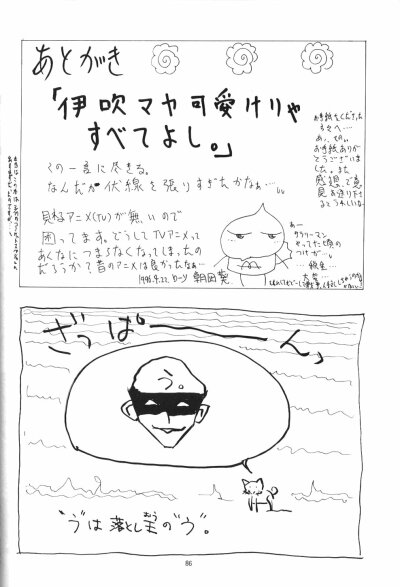 あとがき
「伊吹マヤ可愛けりゃ
すべてよし。」
この一言に尽きる。
なんだか伏線を張りすぎたかなぁ…。
見るアニメ(TV)が無いので
困ってます。どうしてTVアニメって
あんなにつまらなくなってしまったの
だろうか？昔のアニメは良かったなぁ…
1996.9.22.
お手紙をくださった
お手紙ありが
とうございま
した。また
感想、ご意
見お送り下さ
るとうれしいな。
あー
サラリーマン
やってた頃の
ツケが…
ざっぱーーん
う。
“う”は落とし玉の“う”。
おう
86